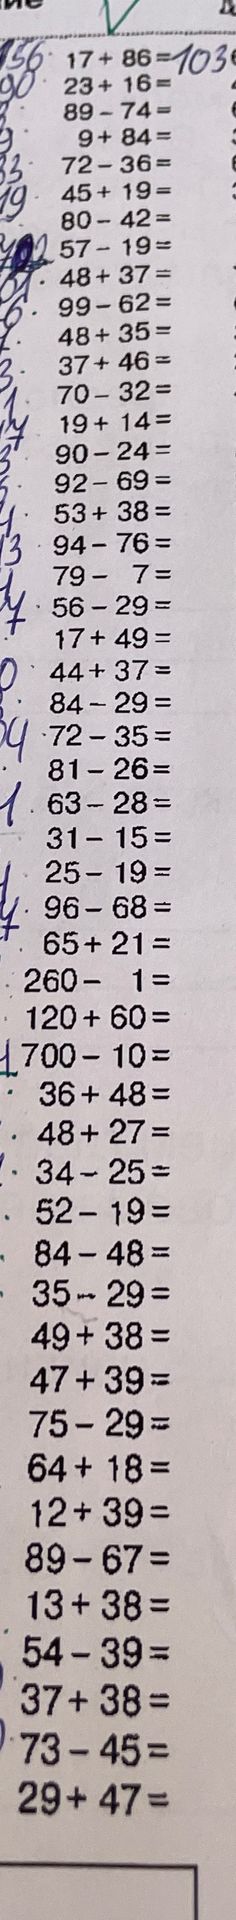 17 + 86 = 103
23 + 16 =
89 – 74 =
9 + 84 =
72 – 36 =
45 + 19 =
80 – 42 =
57 – 19 =
48 + 37 =
99 – 62 =
48 + 35 =
37 + 46 =
70 – 32 =
19 + 14 =
90 – 24 =
92 – 69 =
53 + 38 =
94 – 76 =
79 – 7 =
56 – 29 =
17 + 49 =
44 + 37 =
84 – 29 =
72 – 35 =
81 – 26 =
63 – 28 =
31 – 15 =
25 – 19 =
96 – 68 =
65 + 21 =
260 – 1 =
120 + 60 =
700 – 10 =
36 + 48 =
48 + 27 =
34 – 25 =
52 – 19 =
84 – 48 =
35 – 29 =
49 + 38 =
47 + 39 =
75 – 29 =
64 + 18 =
12 + 39 =
89 – 67 =
13 + 38 =
54 – 39 =
37 + 38 =
73 – 45 =
29 + 47 =